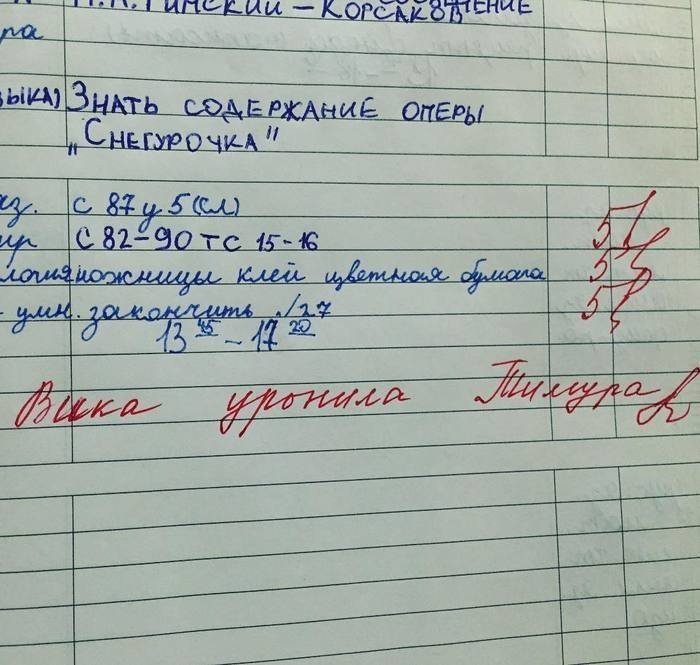 Н.А. РИМСКИЙ – КОРСАКОВ
ра
ЗЫКА) ЗНАТЬ СОДЕРЖАНИЕ ОПЕРЫ
„СНЕГУРОЧКА"
из. с 87 у 5 (сл) 5
ир с 82–90 ТС 15-16 5
логия ножницы клей цветная бумага 5
умн. закончить ./27
13 45 – 17 20
Вика уронила Тимура